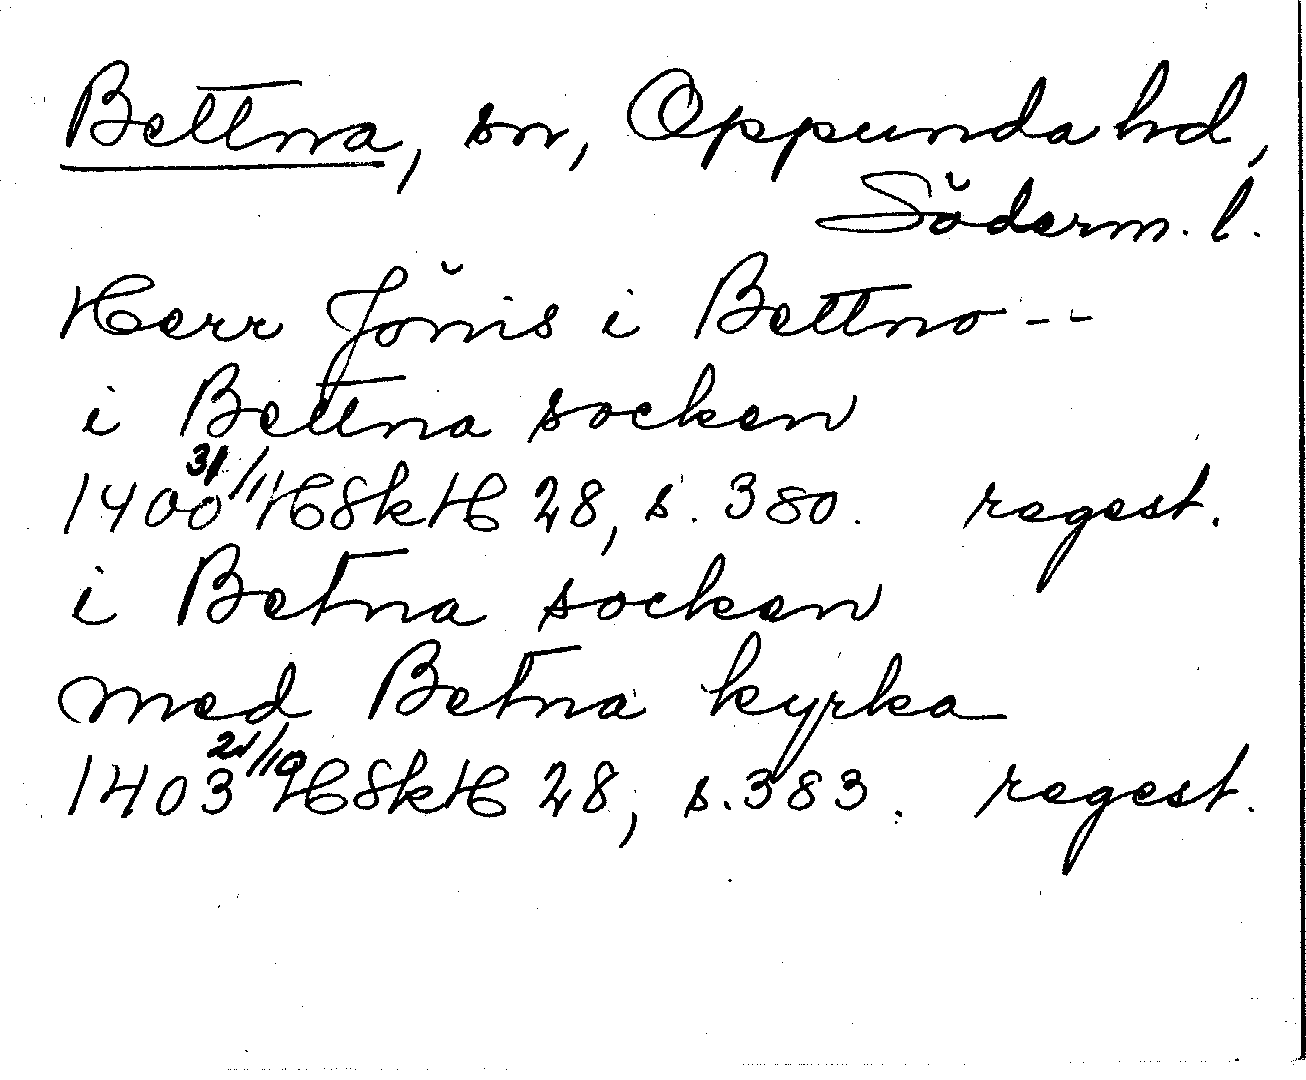 Bettna, sn, Oppunda hd,
Söderm. l.
Herr Jönis i Bettno --
i Bettna socken
1400 31/11 HSkH 28, s. 380. regest.
i Betna socken
med Betna kyrka
1403 21/10 HSkH 28, s. 383. regest.